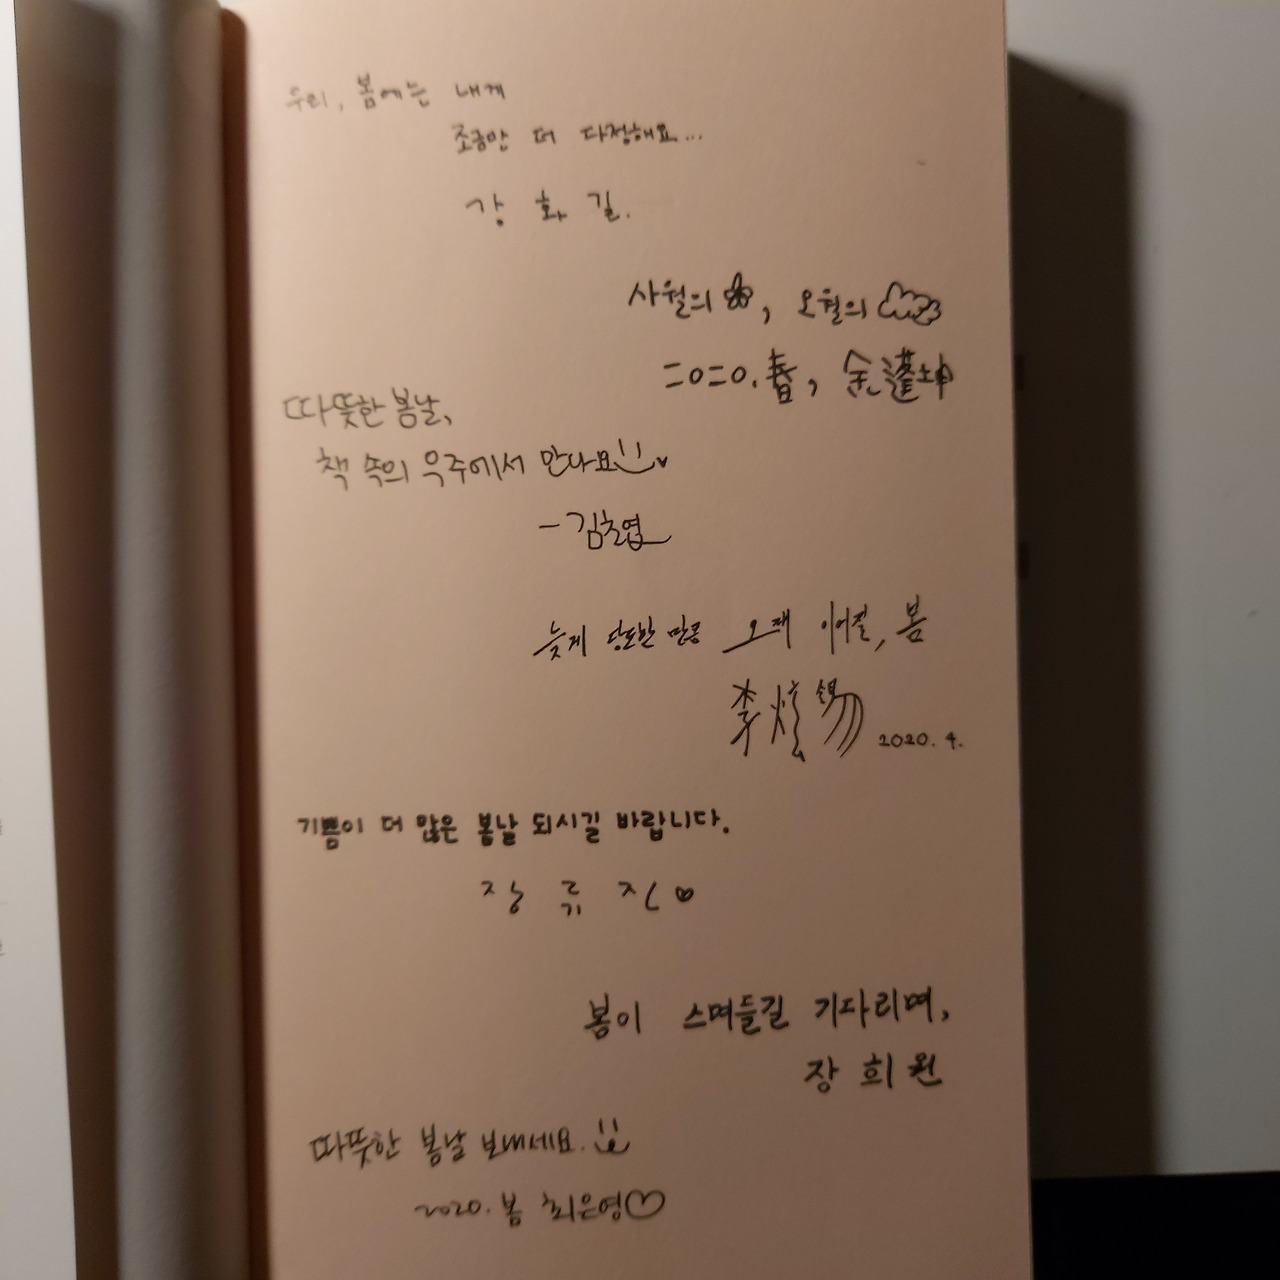 우리, 봄에는 내게
조금만 더 다정해요...
강화길.
사월의 , 오월의
二0二0. 春, 金蓬坤
따뜻한 봄날,
책 속의 우주에서 만나요
- 김초엽
늦게 당도한 만큼 오래 이어질, 봄
李炫錫 2020. 4.
기쁨이 더 많은 봄날 되시길 바랍니다.
장류진♡
봄이 스며들길 기다리며,
장희원
따뜻한 봄날 보내세요.
2020. 봄 최은영♡